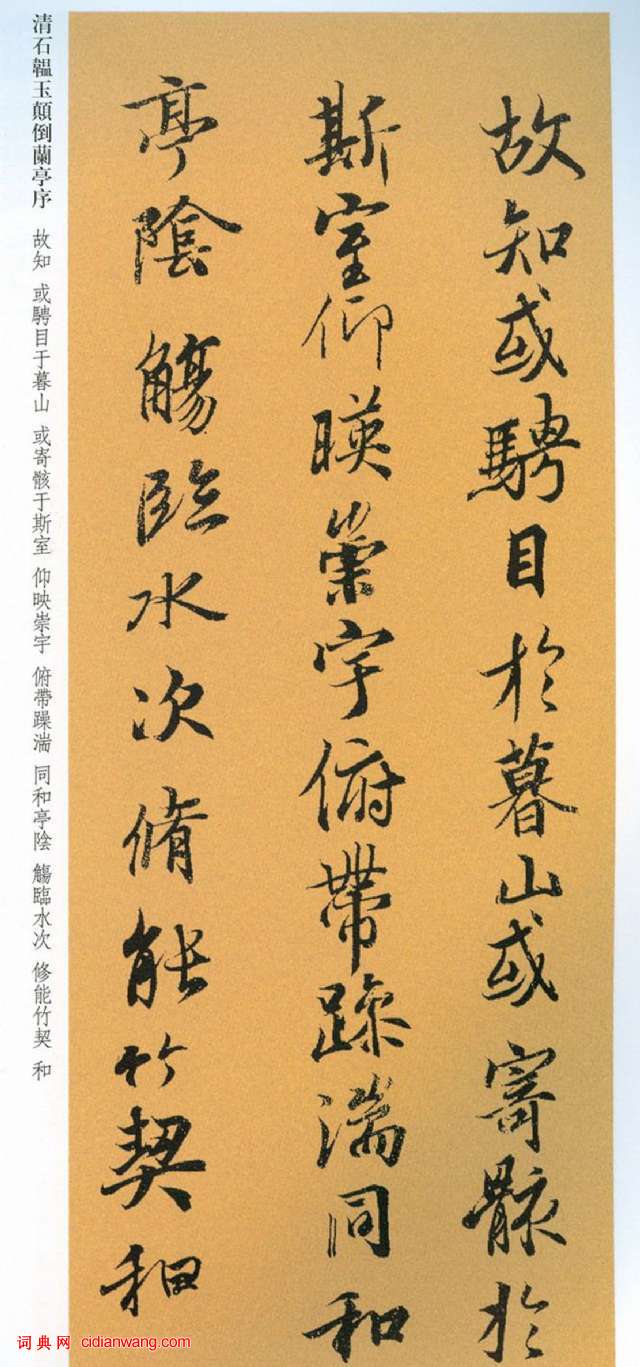 故知或騁目於暮山或寄骸於
斯室仰暎崇宇俯帶躁湍同和
亭陰觴臨水次脩能竹契和
清石韞玉顛倒蘭亭序 故知 或騁目于暮山 或寄骸于斯室 仰映崇宇 俯帶躁湍 同和亭陰 觴臨水次 修能竹契 和
词典网 cidianwang.com